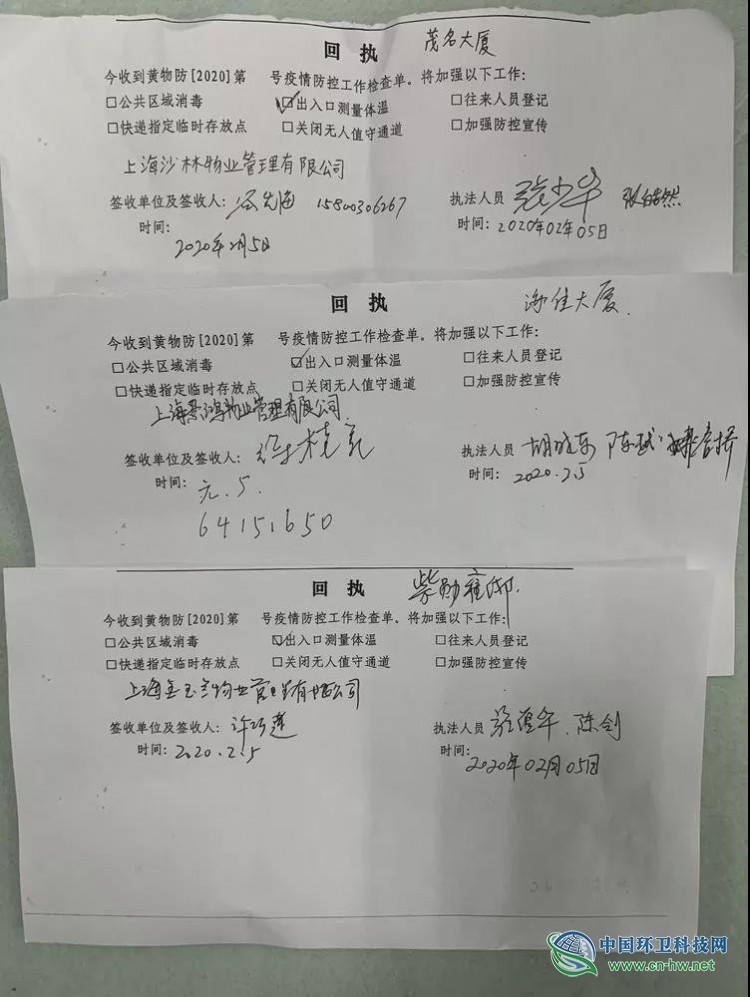 回 执 茂名大厦
今收到黄物防[2020]第 号疫情防控工作检查单。将加强以下工作:
□公共区域消毒 ☑出入口测量体温 □往来人员登记
□快递指定临时存放点 □关闭无人值守通道 □加强防控宣传
上海沙林物业管理有限公司
签收单位及签收人: 15800306267 执法人员 张少华
时间: 2020年2月5日 时间: 2020年02月05日
回 执 海佳大厦
今收到黄物防[2020]第 号疫情防控工作检查单。将加强以下工作:
□公共区域消毒 ☑出入口测量体温 □往来人员登记
□快递指定临时存放点 □关闭无人值守通道 □加强防控宣传
上海景鸿物业管理有限公司
签收单位及签收人: 执法人员 胡晓东
时间: 元.5. 时间: 2020.2.5
64151650
回 执 紫勋雍邸
今收到黄物防[2020]第 号疫情防控工作检查单。将加强以下工作:
□公共区域消毒 ☑出入口测量体温 □往来人员登记
□快递指定临时存放点 □关闭无人值守通道 □加强防控宣传
物业管理有限公司
签收单位及签收人: 许巧莲 执法人员 陈剑
时间: 2020.2.5 时间: 2020年02月05日
中国环卫科技网
www.cn-hw.net